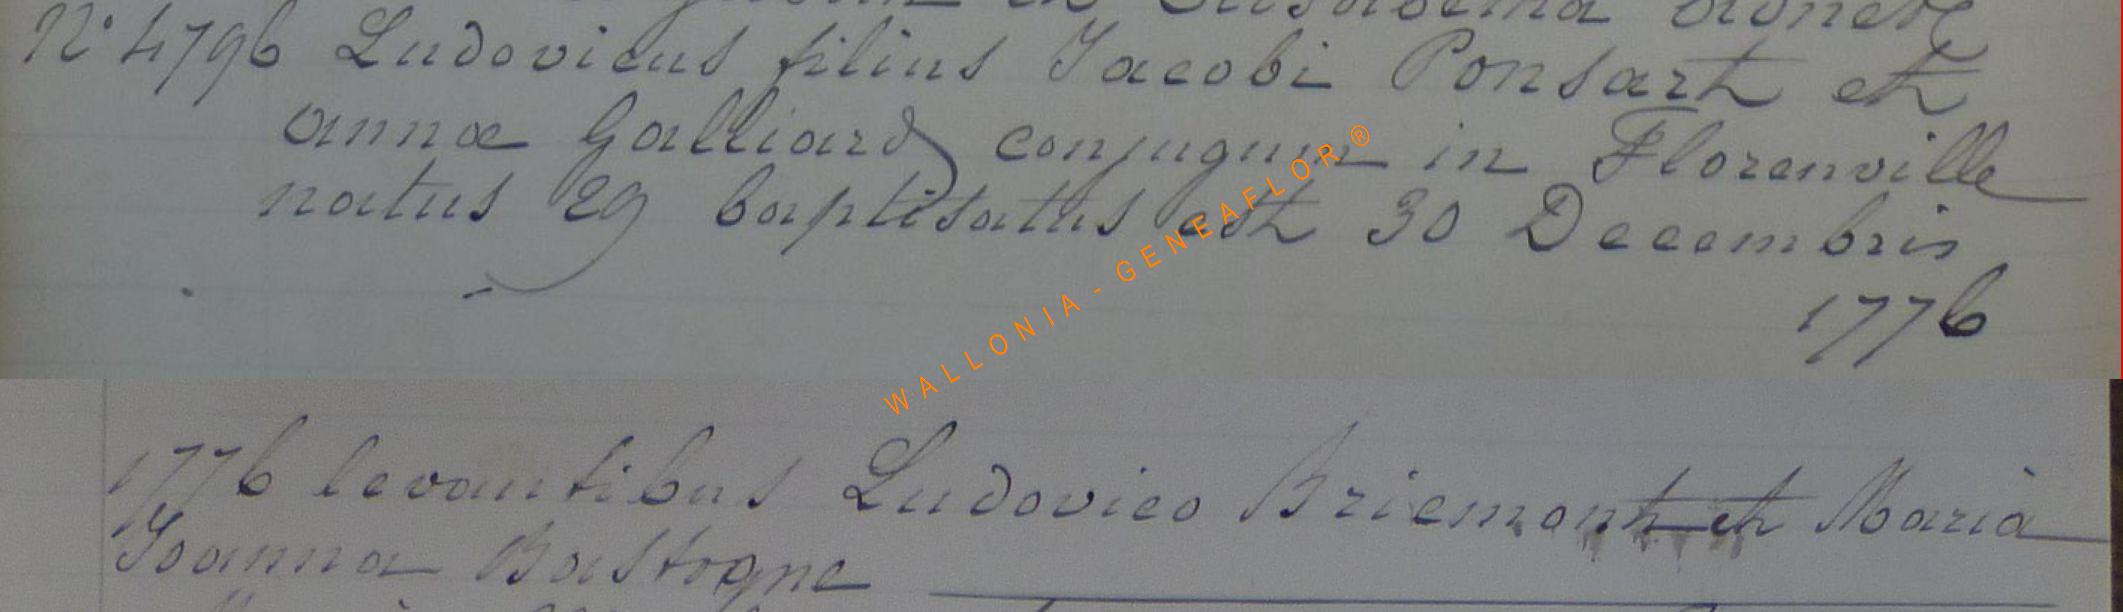 Elisabetha agnete
N° 4796 Ludovicus filius Jacobi Ponsart et
annæ Galliard conjugum in Florenville
natus 29 baptisatus est 30 Decembris
1776
WALLONIA - GENEAFLOR ®
1776 levantibus Ludovico Briemont et Mariâ
Joanna Bastogne